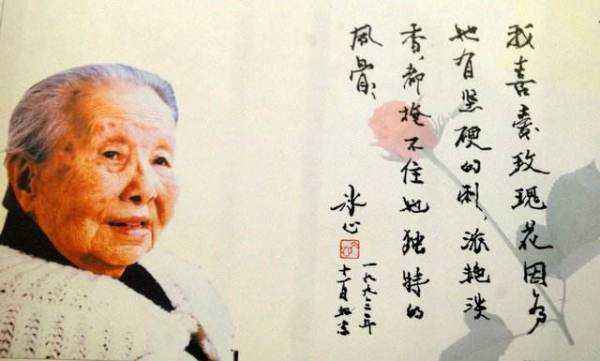 我喜爱玫瑰花因为
她有坚硬的刺,浓艳淡
香,都掩不住她独特的
风骨,
冰心
一九九二年
十一月北京